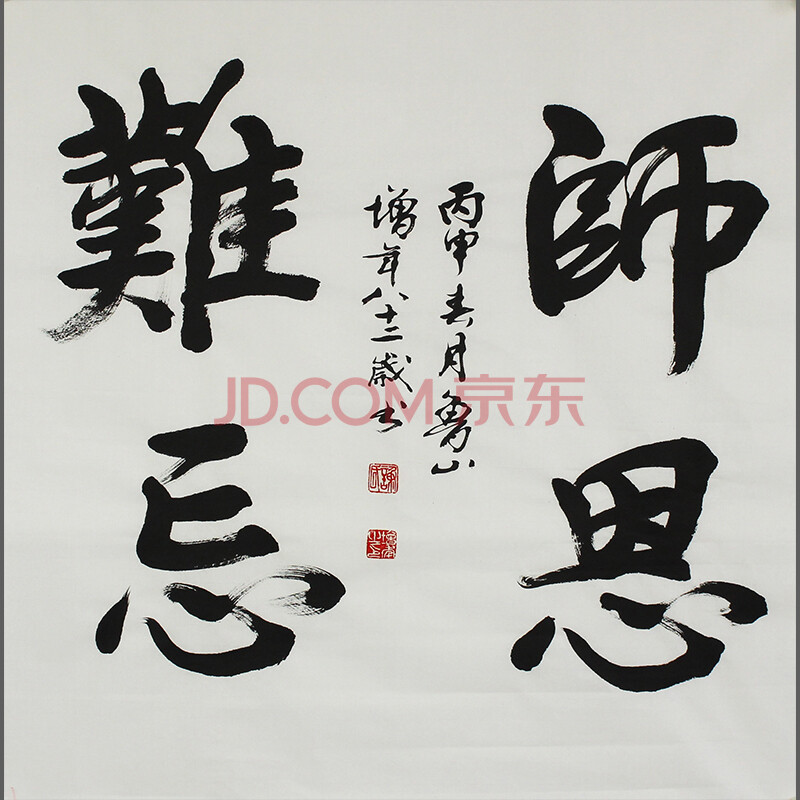 師恩
難忘
丙申春月魯山
增年八十二歲書
JD.COM京东